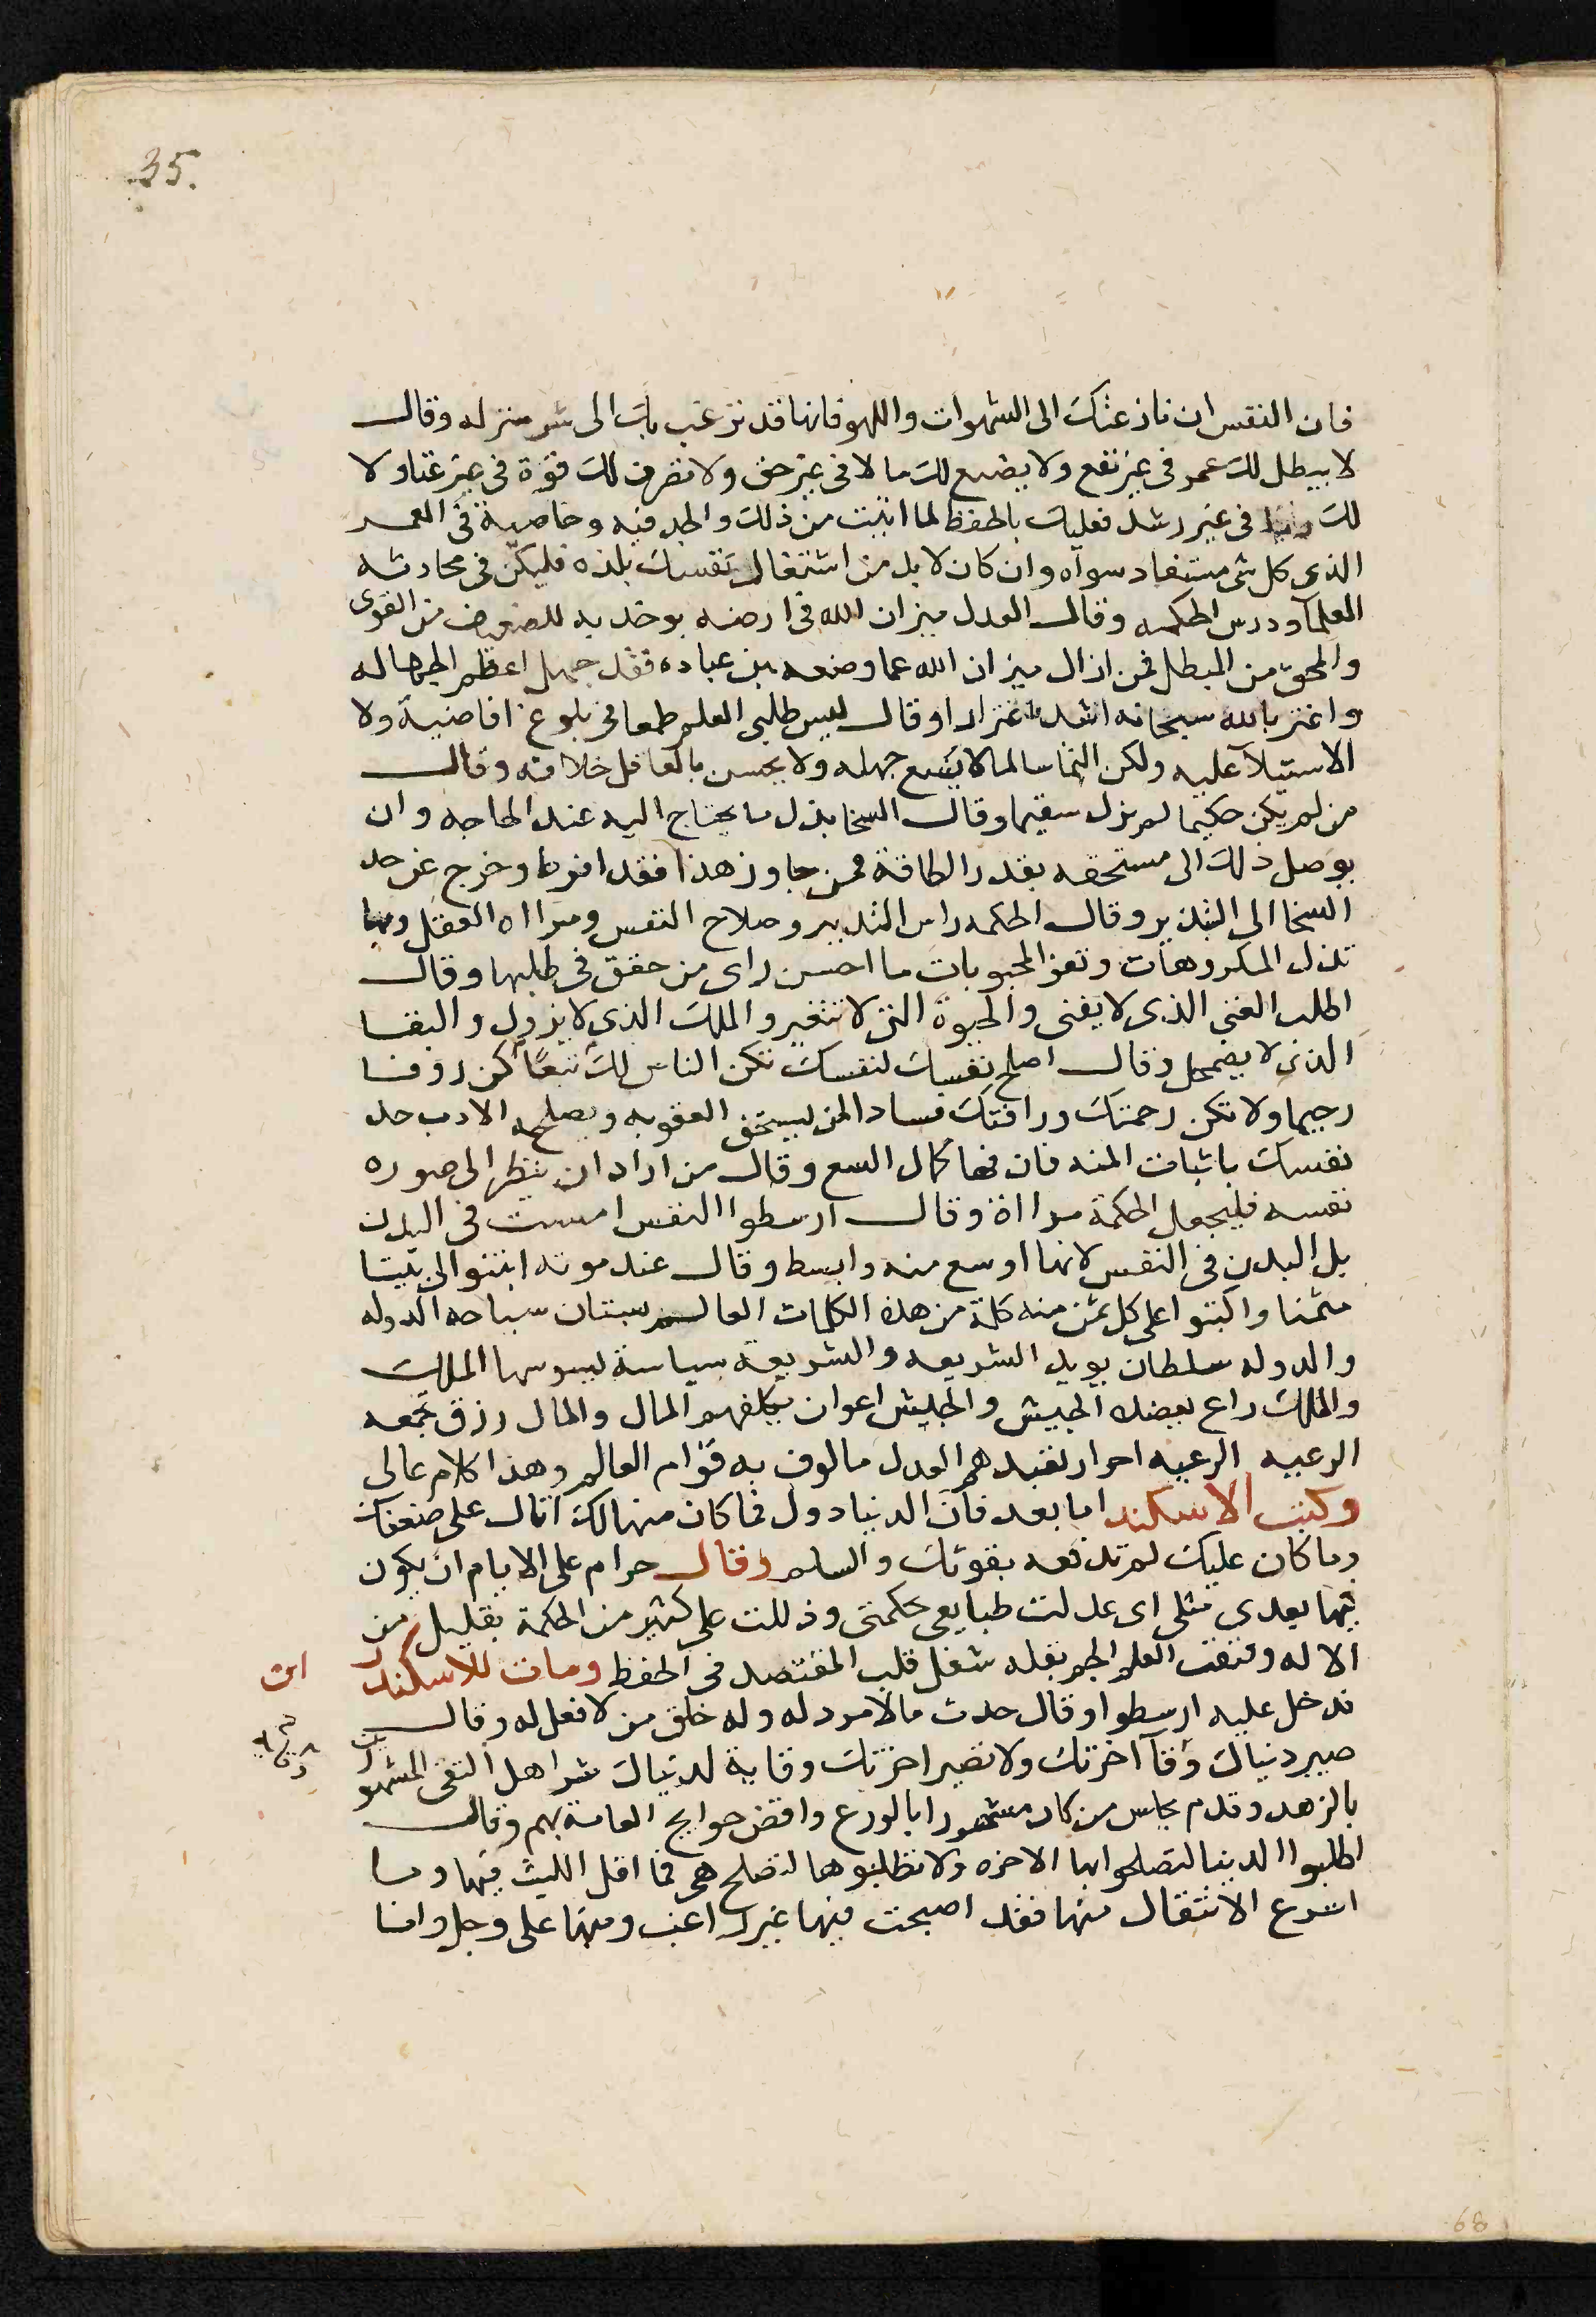 35.
فان النفس ان نازعتك الى الشهوات واللهو فانها قد نزعت بك الى شر منزله وقال
لا يبطل لك عمر فى غير نفع ولا يضيع لك مالا فى غير حق ولا تصرف لك قوة فى غير غنا ولا
لك فى غير رشد فعليك بالحفظ لما اتيت من ذلك والجد فيه وخاصية فى العمر
الذى كل شى مستفاد سوآه وان كان لا بد من اشتغال نفسك بلذه فليكن فى محادثه
العلمآ ودرس الحكمه وقال العدل ميزان الله فى ارضه يوخذ به للضعيف من القوى
والمحق من المبطل فمن ازال ميزان الله عما وضعه بين عباده فقد جهل اعظم الجهاله
واغتر بالله سبحانه اشد اغترارا وقال ليس طلبى العلم طمعا فى بلوغ اقاصيه ولا
الاستيلآ عليه ولكن التماسا لما لا يسع جهله ولا يحسن بالعاقل خلافه وقال
من لم يكن حكيما لم يزل سقيما وقال السخا بذل ما يحتاج اليه عند الحاجه وان
يوصل ذلك الى مستحقه بقدر الطاقة فمن جاوز هذا فقد افرط وخرج عن حد
السخا الى التبذير وقال الحكمه راس التدبير وصلاح النفس ومرااه العقل وبها
تذل المكروهات وتعز المحبوبات ما احسن راى من حقق فى طلبها وقال
اطلب الغنى الذى لا يفنى والحيوة التى لا تتغير والملك الذى لا يزول والبقا
الذى لا يضمحل وقال اصلح نفسك لنفسك تكن الناس لك تبعًا كن روفا
رحيما ولا تكن رحمتك ورافتك فسادا لمن يستحق العقوبه ويصلحه الادب خذ
نفسك باثبات المنه فان فيها كمال السع وقال من اراد ان ينظر الى صوره
نفسه فليجعل الحكمة مرااة وقال ارسطوا النفس امست فى البدن
بل البدن فى النفس لانها اوسع منه وابسط وقال عند موته ابنوا الى بيتا
مثمنا واكتبوا على كل ثمن منه كلمة من هذه الكلمات العالم بستان سياجه الدوله
والدوله سلطان يويد الشريعه والشريعة سياسة يسوسها الملك
والملك راع يعضده الجيش والجيش اعوان يكلفهم المال والمال رزق تجمعه
الرعيه الرعيه احرار تعبدهم العدل مالوف به قوام العالم وهذا كلام عالى
وكتب الاسكندر اما بعد فان الدنيا دول فما كان منها لك اتاك على ضعفك
وما كان عليك لم تدفعه بقوتك والسلم وقال حرام على الايام ان يكون
فيما بعدى مثلى اى عدلت طبايعى حكمتى وذللت على كثير من الحكمة بقليل من
الاله وفتقت العلم الجم بقله شغل قلب المقتصد فى الحفظ ومات للاسكندر ابن
فدخل عليه ارسطوا وقال حدث مالا مرد له وله خلق من لا فعل له وقال
صير دنياك وقآ اخرتك ولا تصير اخرتك وقاية لدنياك شر اهل التقى المشهور
بالزهد وقدم مجلس من كان مشهورا بالورع واقض حوايج العامة بهم وقال
اطلبوا الدنيا لتصلحوا بها الاخره ولا تطلبوها لتصلح هى فما اقل اللبث فيها وما
اسرع الانتقال منها فقد اصبحت فيها غير راغب ومنها على وجل وانا
68